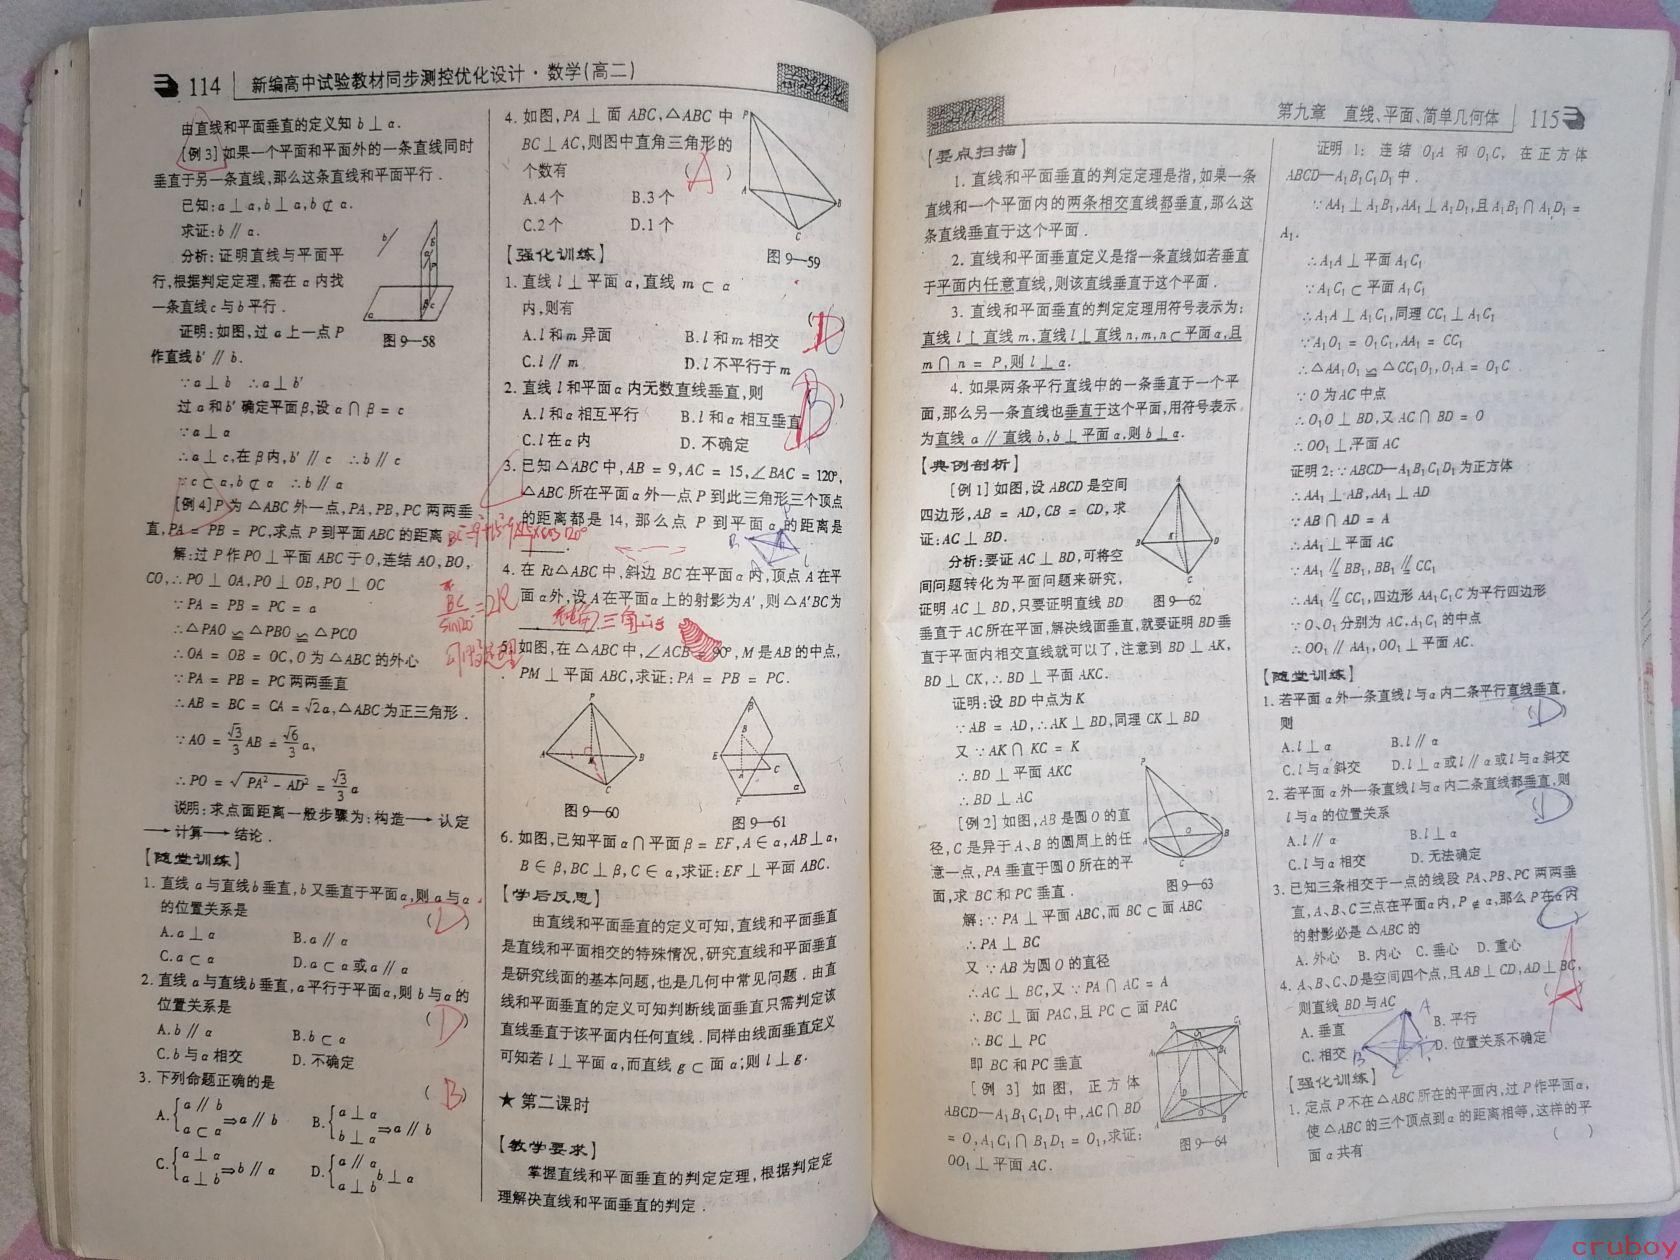 114 新编高中试验教材同步测控优化设计·数学(高二)
由直线和平面垂直的定义知 b⊥α.
[例3]如果一个平面和平面外的一条直线同时
垂直于另一条直线,那么这条直线和平面平行.
已知:a⊥α,b⊥a,b⊄α.
求证:b∥α.
分析:证明直线与平面平
行,根据判定定理,需在α内找
一条直线c与b平行.
证明:如图,过a上一点P
作直线b′∥b.
图9—58
∵a⊥b ∴a⊥b′
过a和b′确定平面β,设α∩β=c
∵a⊥α
∴a⊥c,在β内,b′∥c ∴b∥c
∵c⊂α,b⊄α ∴b∥α
[例4]P为△ABC外一点,PA,PB,PC两两垂
直,PA=PB=PC,求点P到平面ABC的距离
解:过P作PO⊥平面ABC于O,连结AO,BO,
CO,∴PO⊥OA,PO⊥OB,PO⊥OC
∵PA=PB=PC=a
∴△PAO≌△PBO≌△PCO
∴OA=OB=OC,O为△ABC的外心
∵PA=PB=PC两两垂直
∴AB=BC=CA=√2a,△ABC为正三角形.
∵AO=√3/3 AB=√6/3 a,
∴PO=√(PA²-AD²)=√3/3 a
说明:求点面距离一般步骤为:构造→认定
→计算→结论.
【随堂训练】
1. 直线a与直线b垂直,b又垂直于平面α,则a与α
的位置关系是 (D)
A.a⊥α B.a∥α
C.a⊂α D.a⊂α或a∥α
2. 直线a与直线b垂直,a平行于平面α,则b与α的
位置关系是 (D)
A.b∥α B.b⊂α
C.b与α相交 D.不确定
3. 下列命题正确的是 (B)
A.{a∥b a⊂α⇒a∥b B.{a⊥α b⊥α⇒a∥b
C.{a⊥α a⊥b⇒b∥α D.{a∥α a⊥b b⊥α
4. 如图,PA⊥面ABC,△ABC中
BC⊥AC,则图中直角三角形的
个数有 (A)
A.4个 B.3个
C.2个 D.1个
图9—59
【强化训练】
1. 直线l⊥平面α,直线m⊂α
内,则有 (D)
A.l和m异面 B.l和m相交
C.l∥m D.l不平行于m
2. 直线l和平面α内无数直线垂直,则 (D)
A.l和α相互平行 B.l和α相互垂直
C.l在α内 D.不确定
3. 已知△ABC中,AB=9,AC=15,∠BAC=120°,
△ABC所在平面α外一点P到此三角形三个顶点
的距离都是14,那么点P到平面α的距离是
4. 在Rt△ABC中,斜边BC在平面α内,顶点A在平
面α外,设A在平面α上的射影为A′,则△A′BC为
钝角三角形
BC/sin120°=2R
5. 如图,在△ABC中,∠ACB=90°,M是AB的中点,
PM⊥平面ABC,求证:PA=PB=PC.
图9—60 图9—61
6. 如图,已知平面α∩平面β=EF,A∈α,AB⊥α,
B∈β,BC⊥β,C∈α,求证:EF⊥平面ABC.
【学后反思】
由直线和平面垂直的定义可知,直线和平面垂直
是直线和平面相交的特殊情况,研究直线和平面垂直
是研究线面的基本问题,也是几何中常见问题.由直
线和平面垂直的定义可知判断线面垂直只需判定该
直线垂直于该平面内任何直线.同样由线面垂直定义
可知若l⊥平面α,而直线g⊂面α;则l⊥g.
★第二课时
【教学要求】
掌握直线和平面垂直的判定定理,根据判定定
理解决直线和平面垂直的判定.
第九章 直线、平面、简单几何体 115
【要点扫描】
1. 直线和平面垂直的判定定理是指,如果一条
直线和一个平面内的两条相交直线都垂直,那么这
条直线垂直于这个平面.
2. 直线和平面垂直定义是指一条直线如若垂直
于平面内任意直线,则该直线垂直于这个平面.
3. 直线和平面垂直的判定定理用符号表示为:
直线l⊥直线m,直线l⊥直线n,m,n⊂平面α,且
m∩n=P,则l⊥α.
4. 如果两条平行直线中的一条垂直于一个平
面,那么另一条直线也垂直于这个平面,用符号表示
为直线a∥直线b,b⊥平面α,则b⊥α.
【典例剖析】
[例1]如图,设ABCD是空间
四边形,AB=AD,CB=CD,求
证:AC⊥BD.
分析:要证AC⊥BD,可将空
间问题转化为平面问题来研究,
证明AC⊥BD,只要证明直线BD
图9—62
垂直于AC所在平面,解决线面垂直,就要证明BD垂
直于平面内相交直线就可以了,注意到BD⊥AK,
BD⊥CK,∴BD⊥平面AKC.
证明:设BD中点为K
∵AB=AD,∴AK⊥BD,同理CK⊥BD
又∵AK∩KC=K
∴BD⊥平面AKC
∴BD⊥AC
[例2]如图,AB是圆O的直
径,C是异于A、B的圆周上的任
意一点,PA垂直于圆O所在的平
面,求BC和PC垂直.
图9—63
解:∵PA⊥平面ABC,而BC⊂面ABC
∴PA⊥BC
又∵AB为圆O的直径
∴AC⊥BC,又∵PA∩AC=A
∴BC⊥面PAC,且PC⊂面PAC
∴BC⊥PC
即BC和PC垂直
[例3]如图,正方体
ABCD—A₁B₁C₁D₁中,AC∩BD
=O,A₁C₁∩B₁D₁=O₁,求证:
OO₁⊥平面AC.
图9—64
证明1:连结O₁A和O₁C,在正方体
ABCD—A₁B₁C₁D₁中.
∵AA₁⊥A₁B₁,AA₁⊥A₁D₁,且A₁B₁∩A₁D₁=
A₁.
∴A₁A⊥平面A₁C₁
∵A₁C₁⊂平面A₁C₁
∴A₁A⊥A₁C₁,同理CC₁⊥A₁C₁
∵A₁O₁=O₁C₁,AA₁=CC₁
∴△AA₁O₁≌△CC₁O₁,O₁A=O₁C
∵O为AC中点
∴O₁O⊥BD,又AC∩BD=O
∴OO₁⊥平面AC
证明2:∵ABCD—A₁B₁C₁D₁为正方体
∴AA₁⊥AB,AA₁⊥AD
∵AB∩AD=A
∴AA₁⊥平面AC
∵AA₁∥BB₁,BB₁∥CC₁
∴AA₁∥CC₁,四边形AA₁C₁C为平行四边形
∵O、O₁分别为AC、A₁C₁的中点
∴OO₁∥AA₁,OO₁⊥平面AC.
【随堂训练】
1. 若平面α外一条直线l与α内二条平行直线垂直,
则 (D)
A.l⊥α B.l∥α
C.l与α斜交 D.l⊥α或l∥α或l与α斜交
2. 若平面α外一条直线l与α内二条直线都垂直,则
l与α的位置关系 (D)
A.l∥α B.l⊥α
C.l与α相交 D.无法确定
3. 已知三条相交于一点的线段PA、PB、PC两两垂
直,A、B、C三点在平面α内,P∉α,那么P在α内
的射影必是△ABC的 (C)
A.外心 B.内心 C.垂心 D.重心
4. A、B、C、D是空间四个点,且AB⊥CD,AD⊥BC,
则直线BD与AC (A)
A.垂直 B.平行
C.相交 D.位置关系不确定
【强化训练】
1. 定点P不在△ABC所在的平面内,过P作平面α,
使△ABC的三个顶点到α的距离相等,这样的平
面α共有 ( )
cruboy